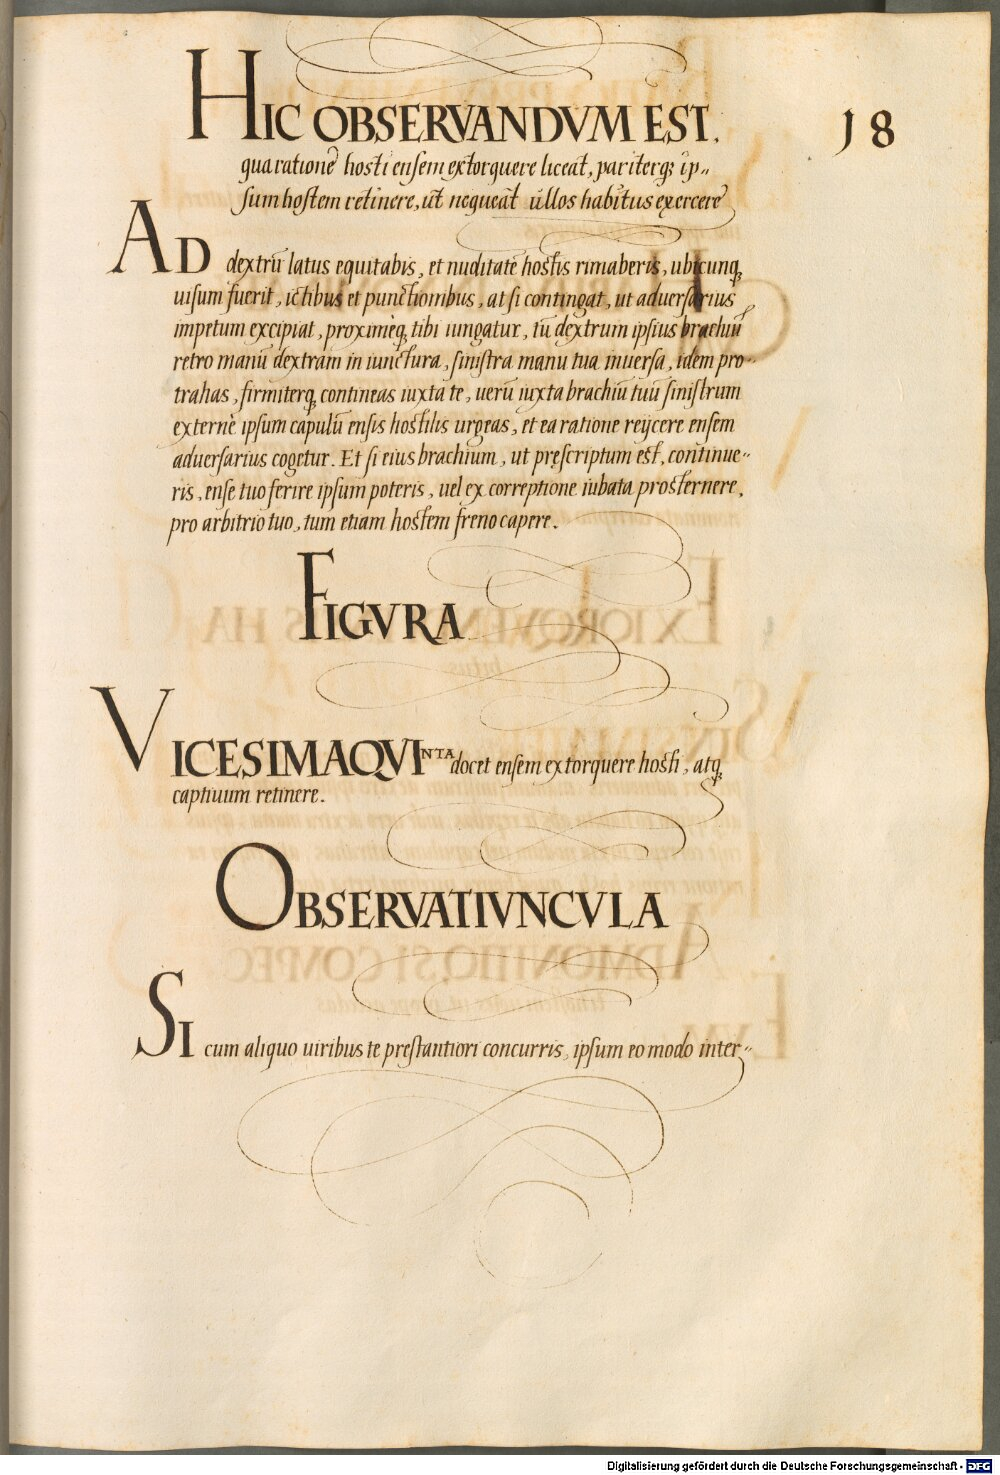 HIC OBSERVANDVM EST.
18
qua ratione hosti ensem extorquere liceat, pariterq; ip-
sum hostem retinere, ut nequeat ullos habitus exercere
AD dextrũ latus equitabis, et nuditatẽ hostis rimaberis, ubicunq;
uisum fuerit, ictibus et punctionibus, at si contingat, ut aduersarius
impetum excipiat, proximèq; tibi iungatur, tũ dextrum ipsius brachiũ
retro manũ dextram in iunctura, sinistra manu tua inuersa, idem pro-
trahas, firmiterq; contineas iuxta te, uerũ iuxta brachiũ tuũ sinistrum
externè ipsum capulũ ensis hostilis urgeas, et ea ratione reijcere ensem
aduersarius cogetur. Et si eius brachium, ut pręscriptum est, continue-
ris, ense tuo ferire ipsum poteris, uel ex correptione iubata prosternere,
pro arbitrio tuo, tum etiam hostem freno capere.
FIGVRA
VICESIMAQVINTA docet ensem extorquere hosti, atq;
captiuum retinere.
OBSERVATIVNCVLA
SI cum aliquo uiribus te prestantiori concurris, ipsum eo modo inter-
Digitalisierung gefördert durch die Deutsche Forschungsgemeinschaft - DFG